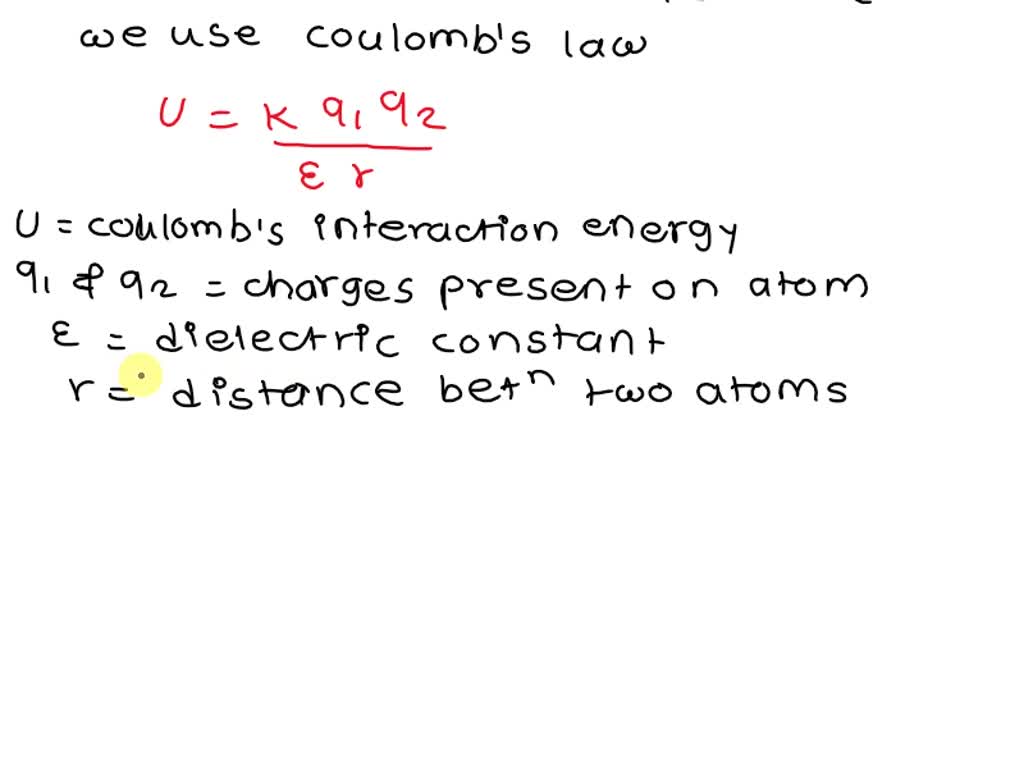 we use coulomb's law
U = K q1 q2
ε r
U = coulomb's interaction energy
q1 & q2 = charges present on atom
ε = dielectric constant
r = distance betn two atoms